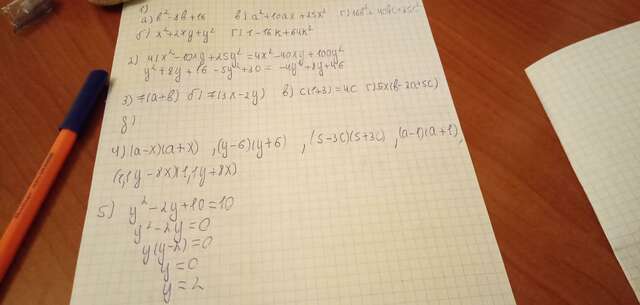 1)
а) b²-8b+16 в) a²+10ax+25x² г) 16b²+40bc+25c²
б) x²+2xy+y² г) 1-16k+64k²
2) 4(x²-10xy+25y²=4x²-40xy+100y²
y²+8y+16-5y²+30=-4y²+8y+46
3) 7(a+b) б) 7(3x-2y) в) c(1+3)=4c г) 5x(b-3a+5c)
д)
4) (a-x)(a+x), (y-6)(y+6), (5-3c)(5+3c), (a-1)(a+1),
(1,1y-8x)(1,1y+8x)
5) y²-2y+10=10
y²-2y=0
y(y-2)=0
y=0
y=2